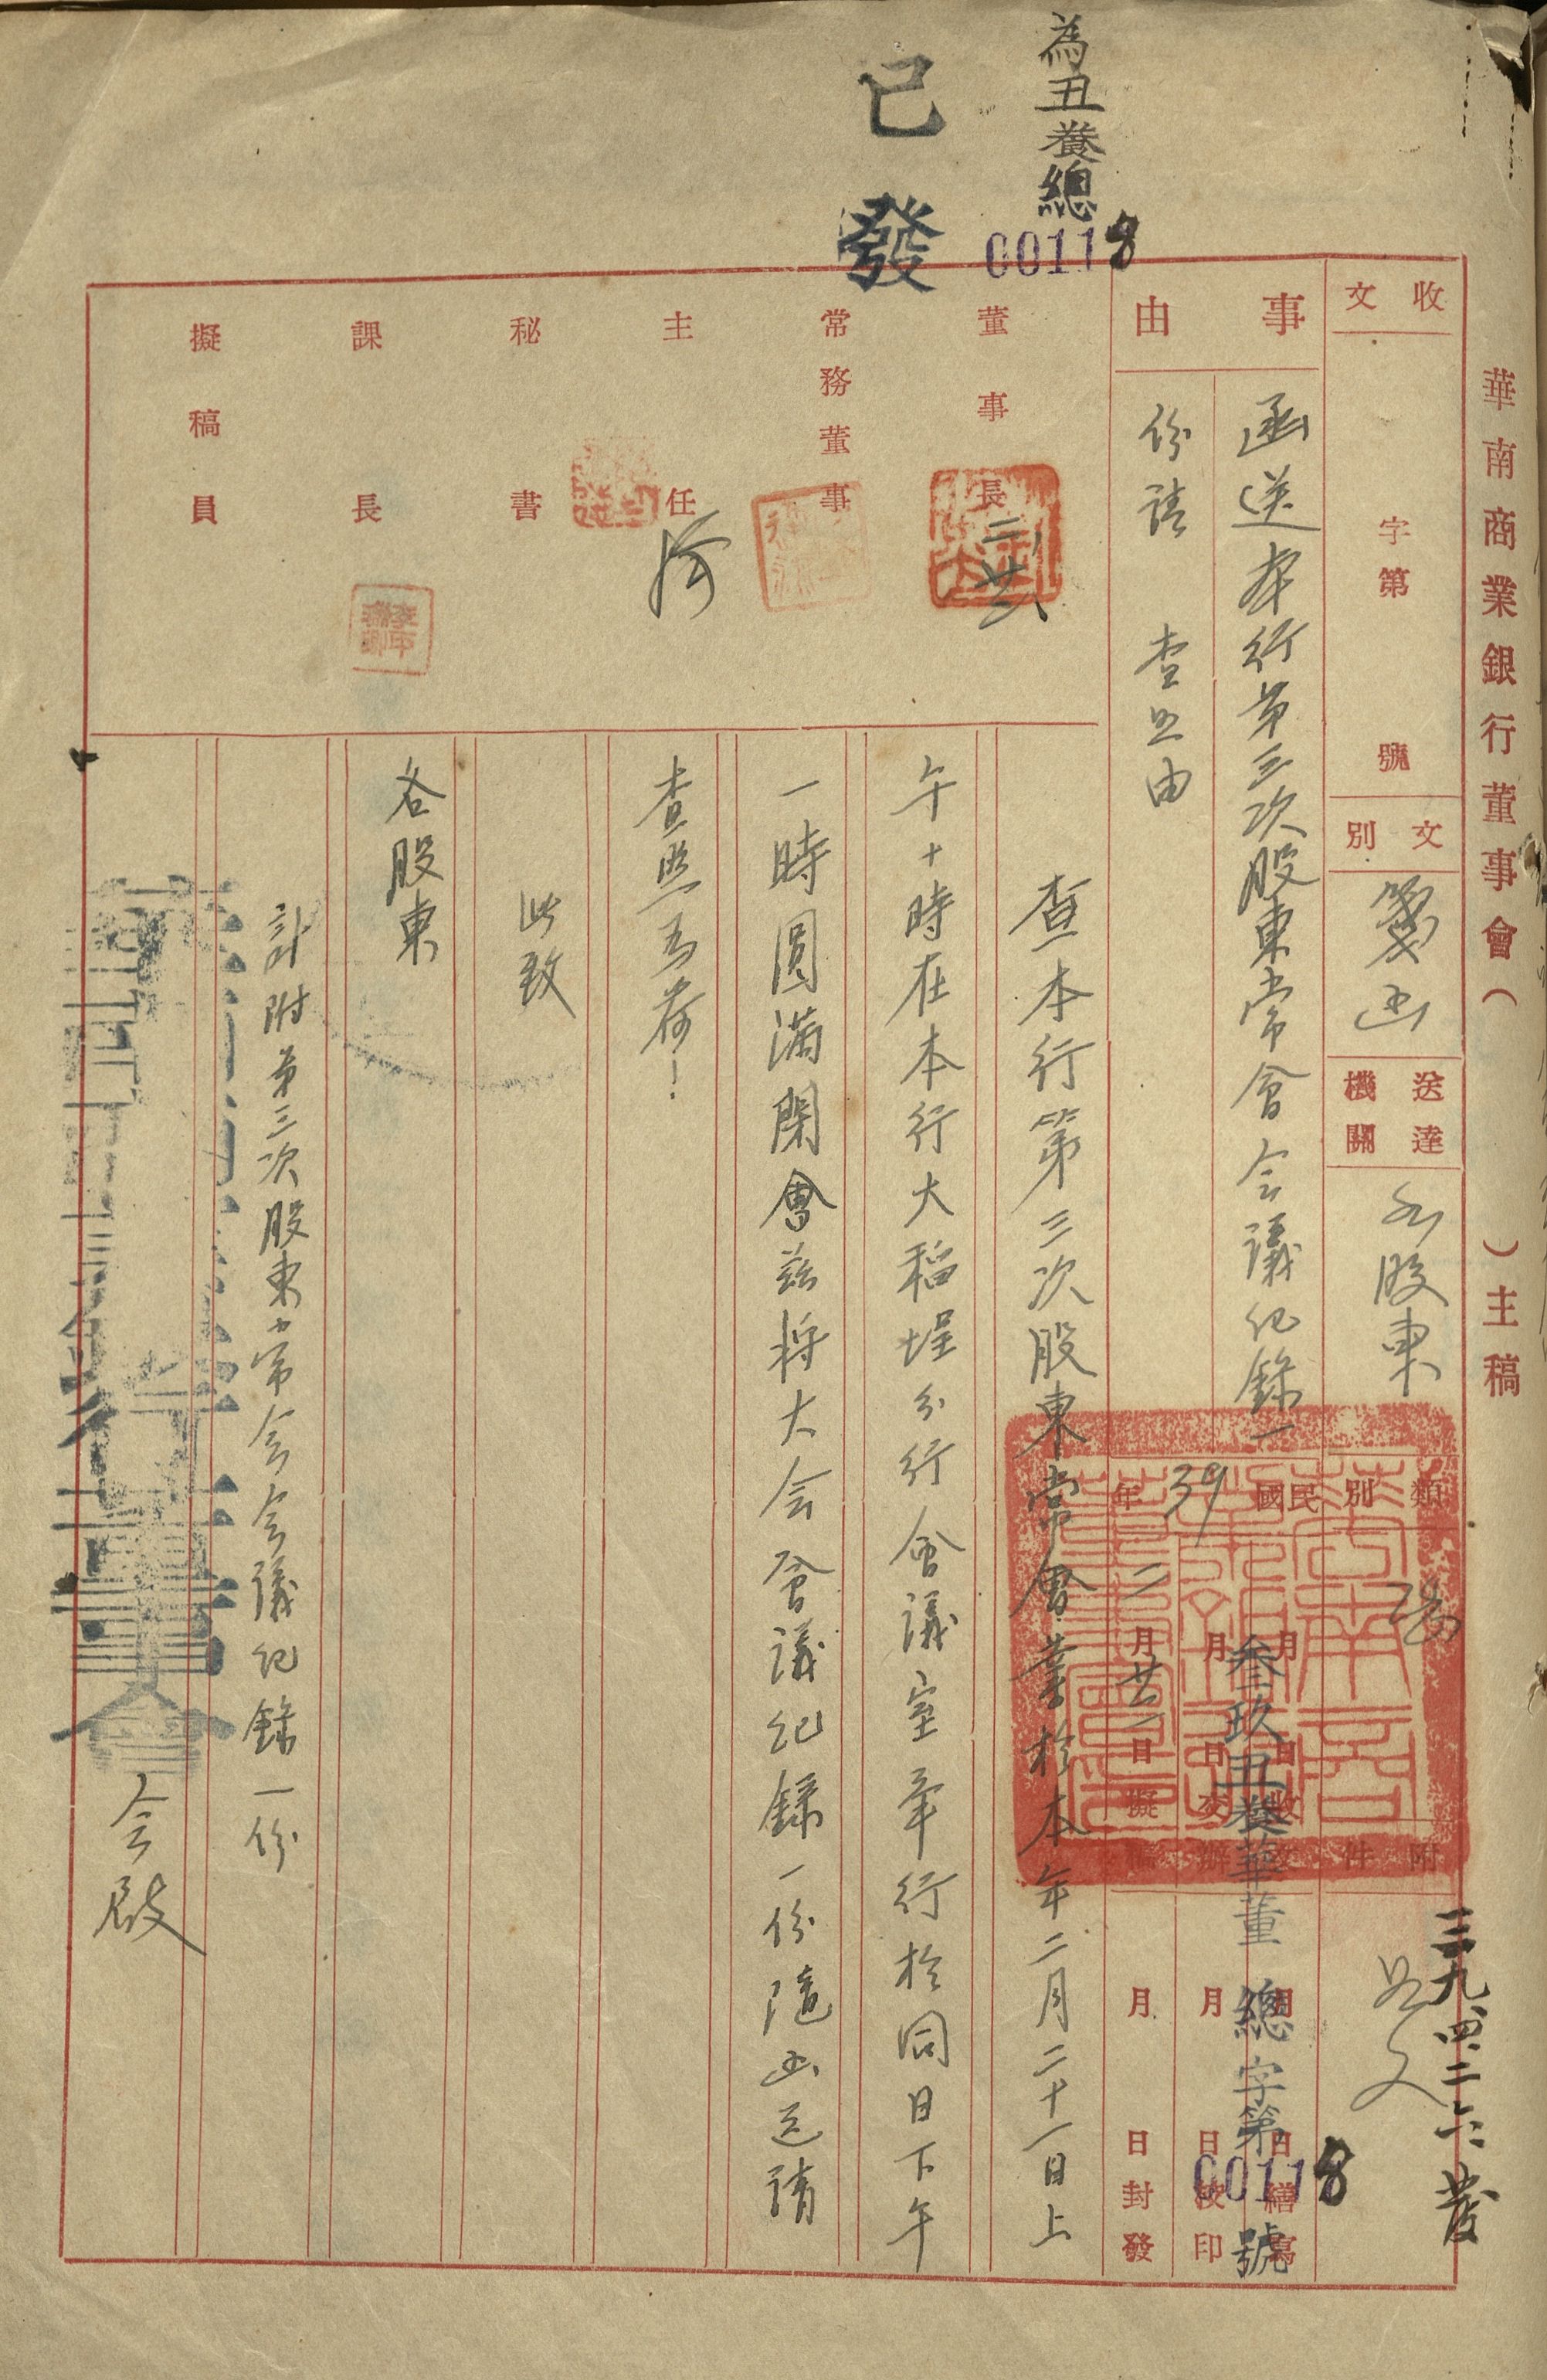 華南商業銀行董事會（　　）主稿
為丑養總
00118
已發
收文
字第　號
文別
箋函
送達機關
各股東
類別
附件
如文
三九、四、二六發
事由
函送本行第三次股東常會会議紀錄一
份請　查照由
民國39年
月　日收文
月　日交辦
二月廿一日擬稿
月　日繕寫
月　日校印
月　日封發
叁玖丑養華董總字第00118號
董事長
常務董事
主任
秘書
課長
擬稿員
查本行第三次股東常會業於本年二月二十一日上
午十時在本行大稻埕分行會議室舉行於同日下午
一時圓滿閉會茲將大会會議紀錄一份隨函送請
查照為荷！
此致
各股東
計附第三次股東常会会議紀錄一份
華南商業銀行董事會
会啟